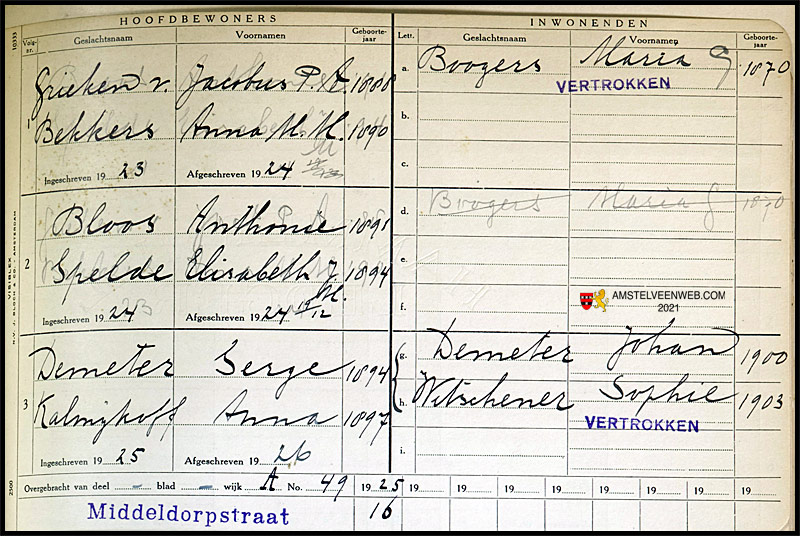 HOOFDBEWONERS
INWONENDEN
Volg-nr.
Geslachtsnaam
Voornamen
Geboorte-jaar
Lett.
Geslachtsnaam
Voornamen
Geboorte-jaar
1
Grieken v. Jacobus P. A. 1888
Bekkers Anna M. M. 1890
Ingeschreven 1923
Afgeschreven 1924
a. Boogers Maria G 1870
VERTROKKEN
b.
c.
2
Bloos Anthonie 1891
Spelde Elisabeth J. M. 1894
Ingeschreven 1924
Afgeschreven 1924 19/12
d. Boogers Maria G 1870
e.
f.
AMSTELVEENWEB.COM
2021
3
Demeter Serge 1894
Kalmykoff Anna 1897
Ingeschreven 1925
Afgeschreven 1926
g. Demeter Johan 1900
h. Witschener Sophie 1903
VERTROKKEN
i.
Overgebracht van deel — blad — wijk A No. 49 1925 19 19 19 19 19 19 19 19
Middeldorpstraat 16
10333
VISIBLEX
N.V. J. BLOCH & CO. AMSTERDAM
2500